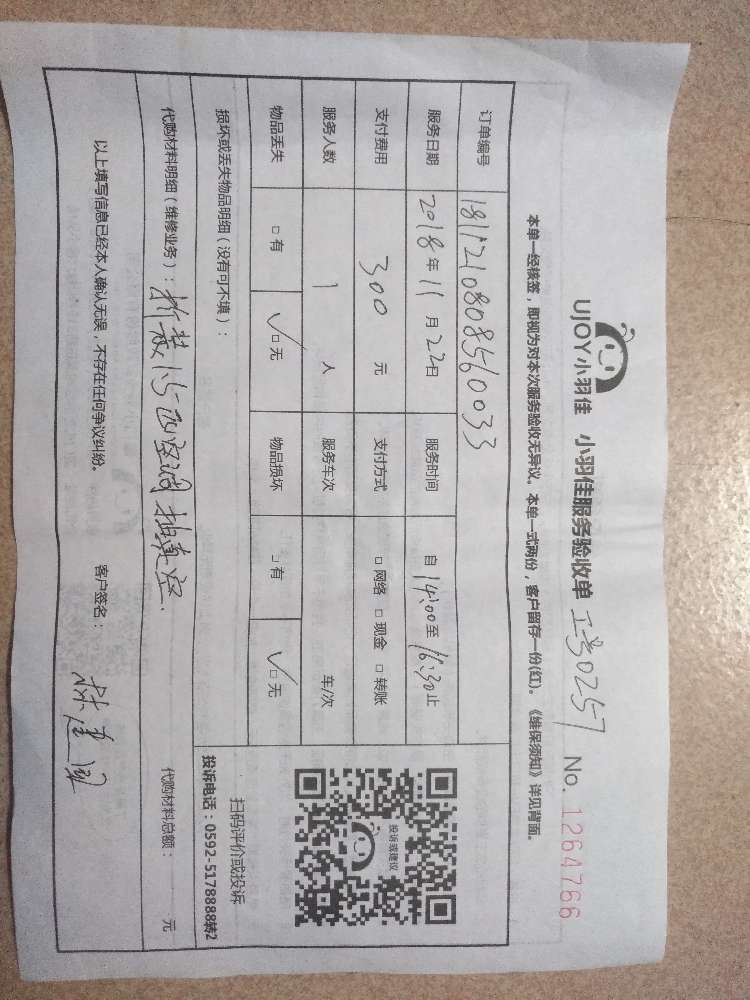 UJOY小羽佳 小羽佳服务验收单 工号0257 No. 1264766
本单一经核签，即视为对本次服务验收无异议。本单一式两份，客户留存一份(红)。《维保须知》详见背面。
订单编号 1811210808560033
服务日期 2018年11月22日 服务时间 自14:00至16:30止
支付费用 300 元 支付方式 □网络 □现金 □转账
服务人数 1 人 服务车次 车/次
物品丢失 □有 ✓□无 物品损坏 □有 ✓□无
损坏或丢失物品明细（没有可不填）：
代购材料明细（维修业务）：拆装1.5匹空调抽真空. 代购材料总额： 元
以上填写信息已经本人确认无误，不存在任何争议纠纷。 客户签名：
投诉或建议
扫码评价或投诉
投诉电话：0592-5178888转2